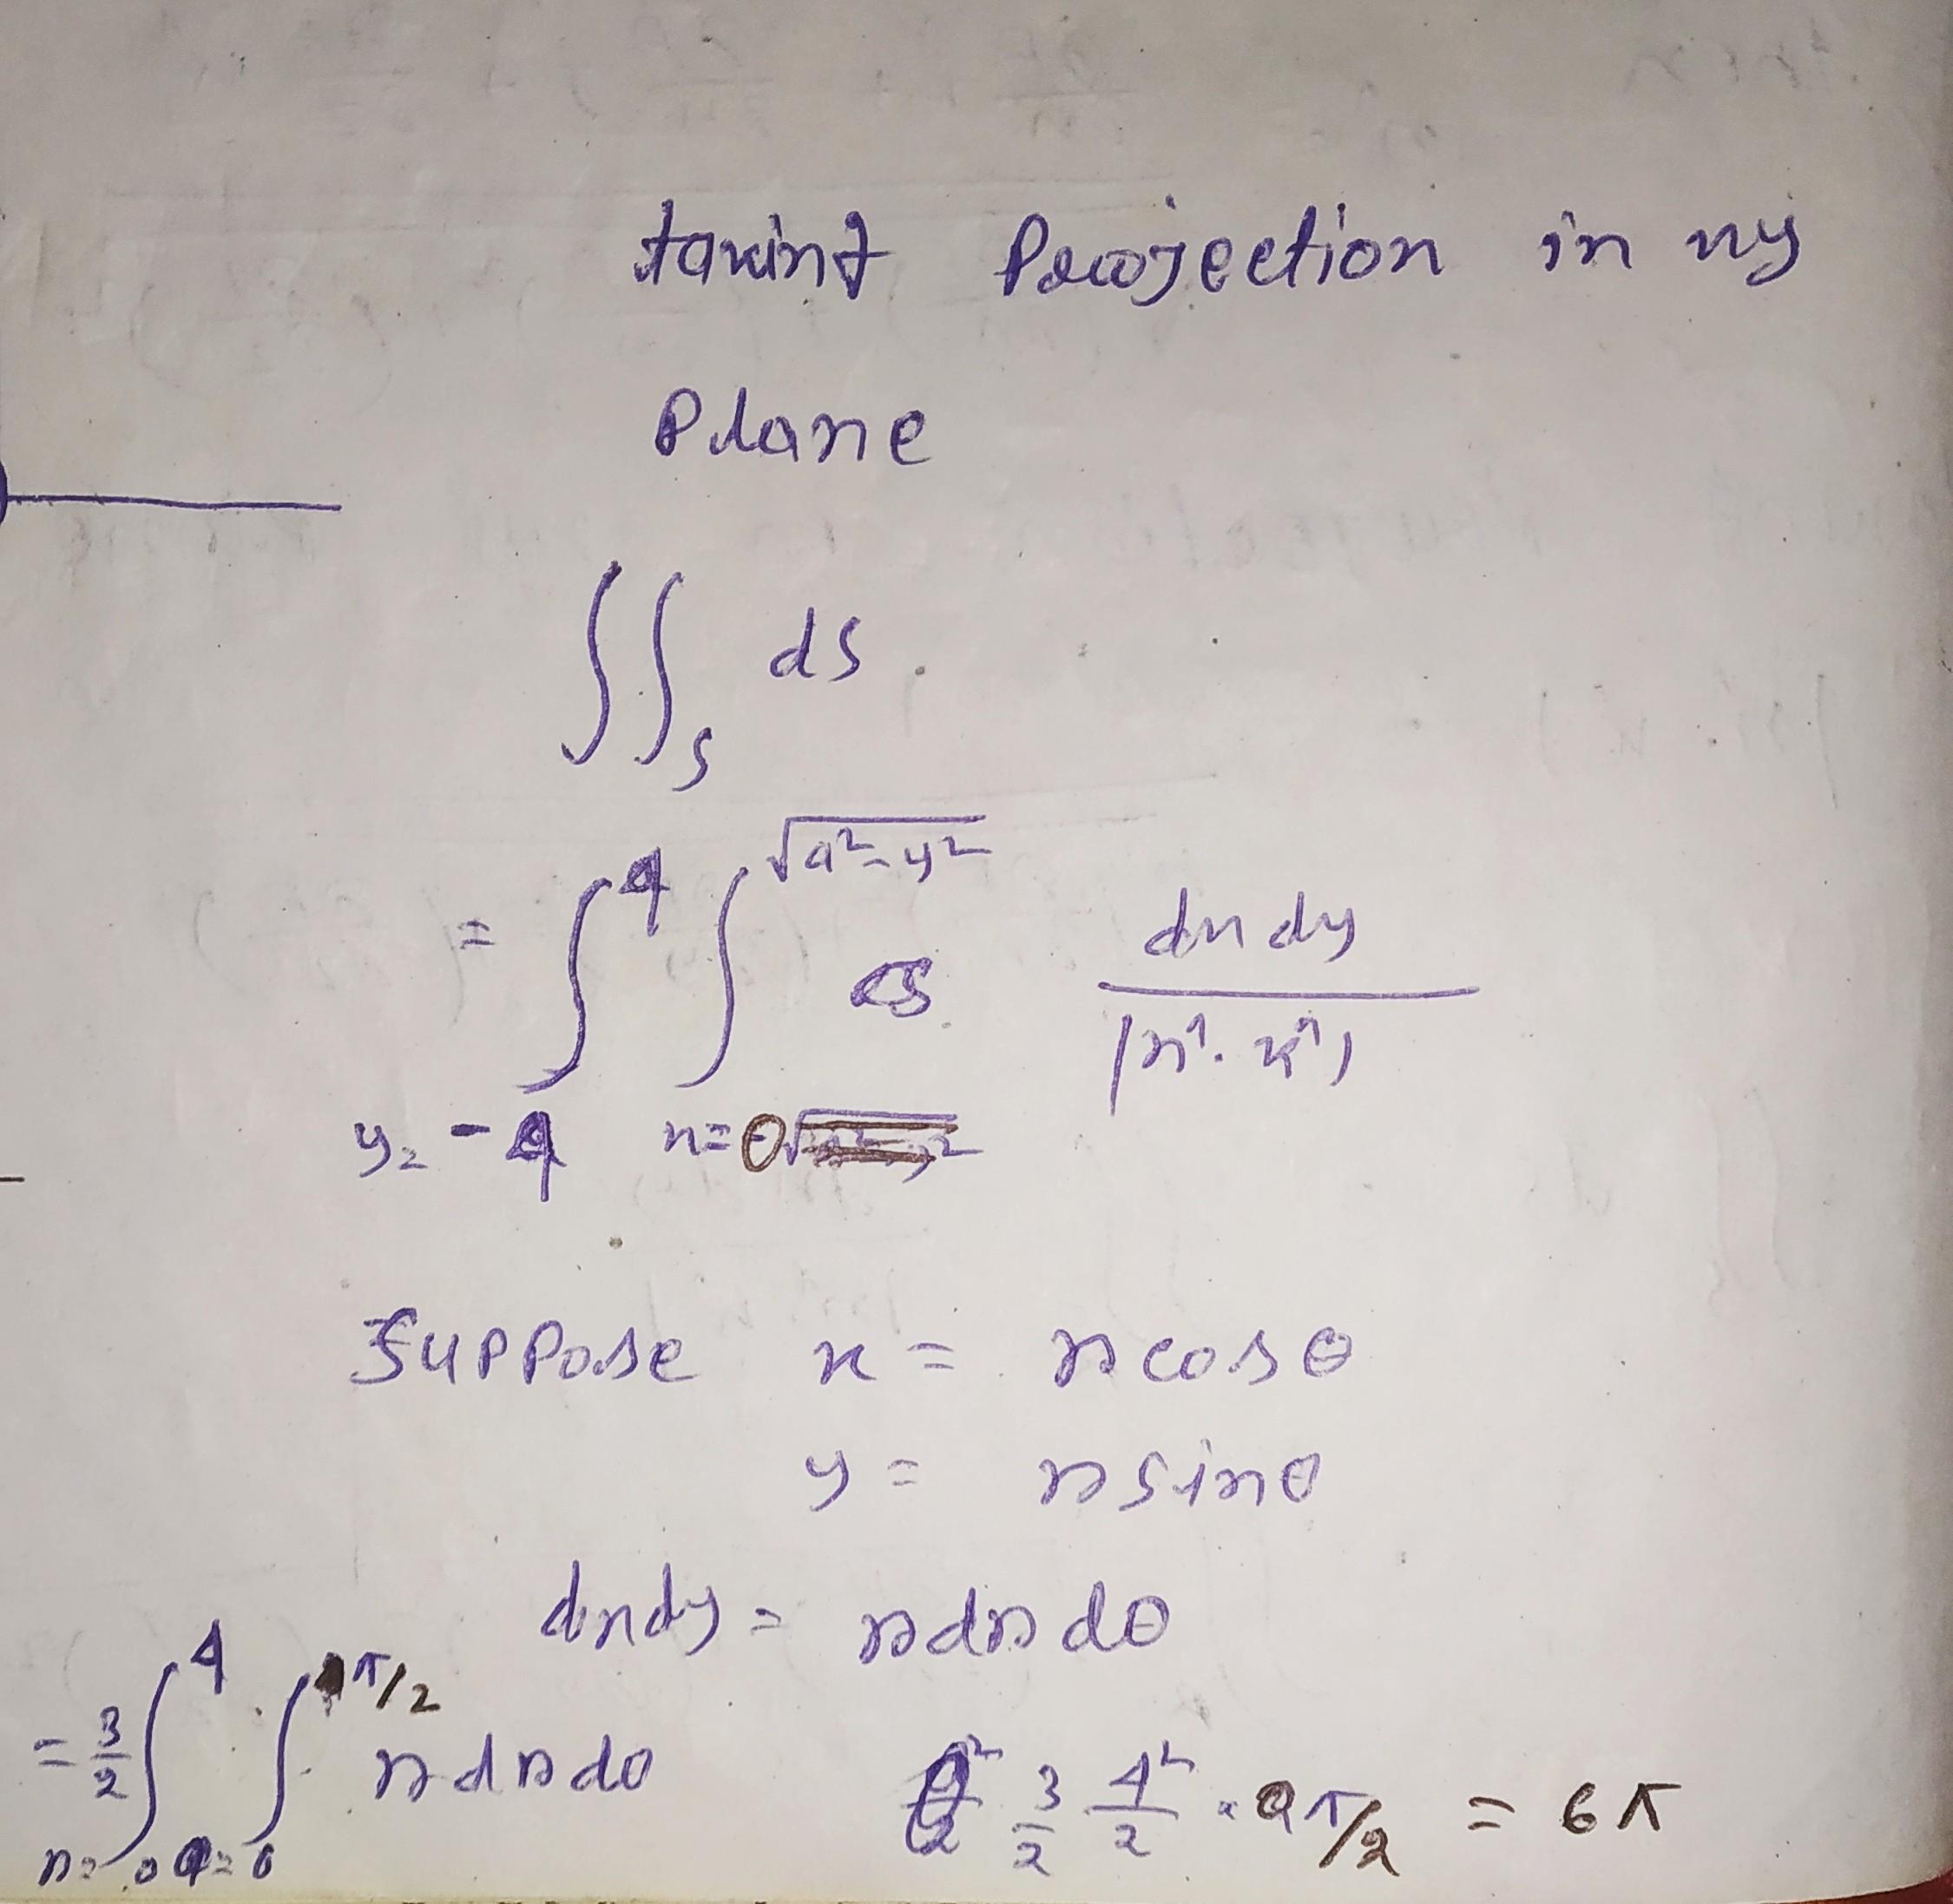 taking Projection in xy
Plane
∫∫_S ds
= ∫_{y=-4}^{4} ∫_{x=0}^{√(a²-y²)} dx dy / |n̂·k̂|
Suppose x = r cosθ
y = r sinθ
dxdy = r dr dθ
= 3/2 ∫_{r=0}^{4} ∫_{θ=0}^{π/2} r dr dθ 3/2 4²/2 · π/2 = 6π